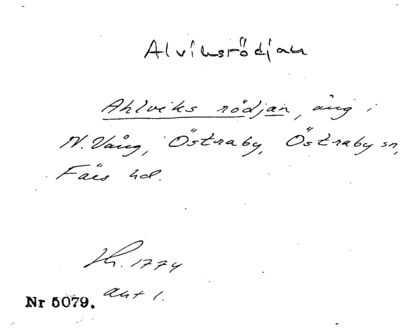 Alviksrödjan
Ahlviks rödjan, äng i
N. Vång, Östraby, Östraby sn,
Färs hd.
Kr. 1774
akt 1.
Nr 5079.